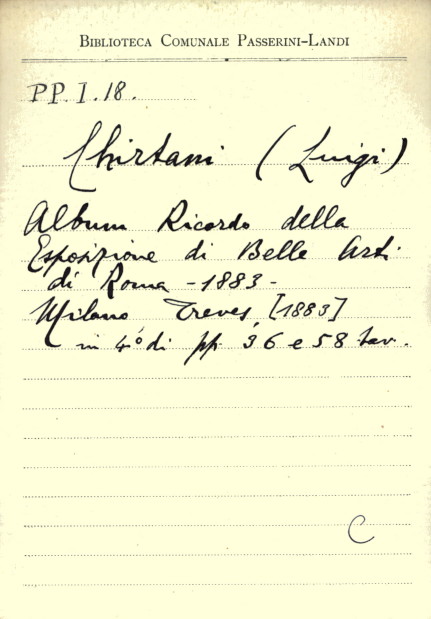 BIBLIOTECA COMUNALE PASSERINI-LANDI
PP. I. 18.
Chirtani (Luigi)
Album Ricordo della
Esposizione di Belle Arti
di Roma - 1883 -
Milano Treves, [1883]
in 4º di pp. 36 e 58 tav.
C